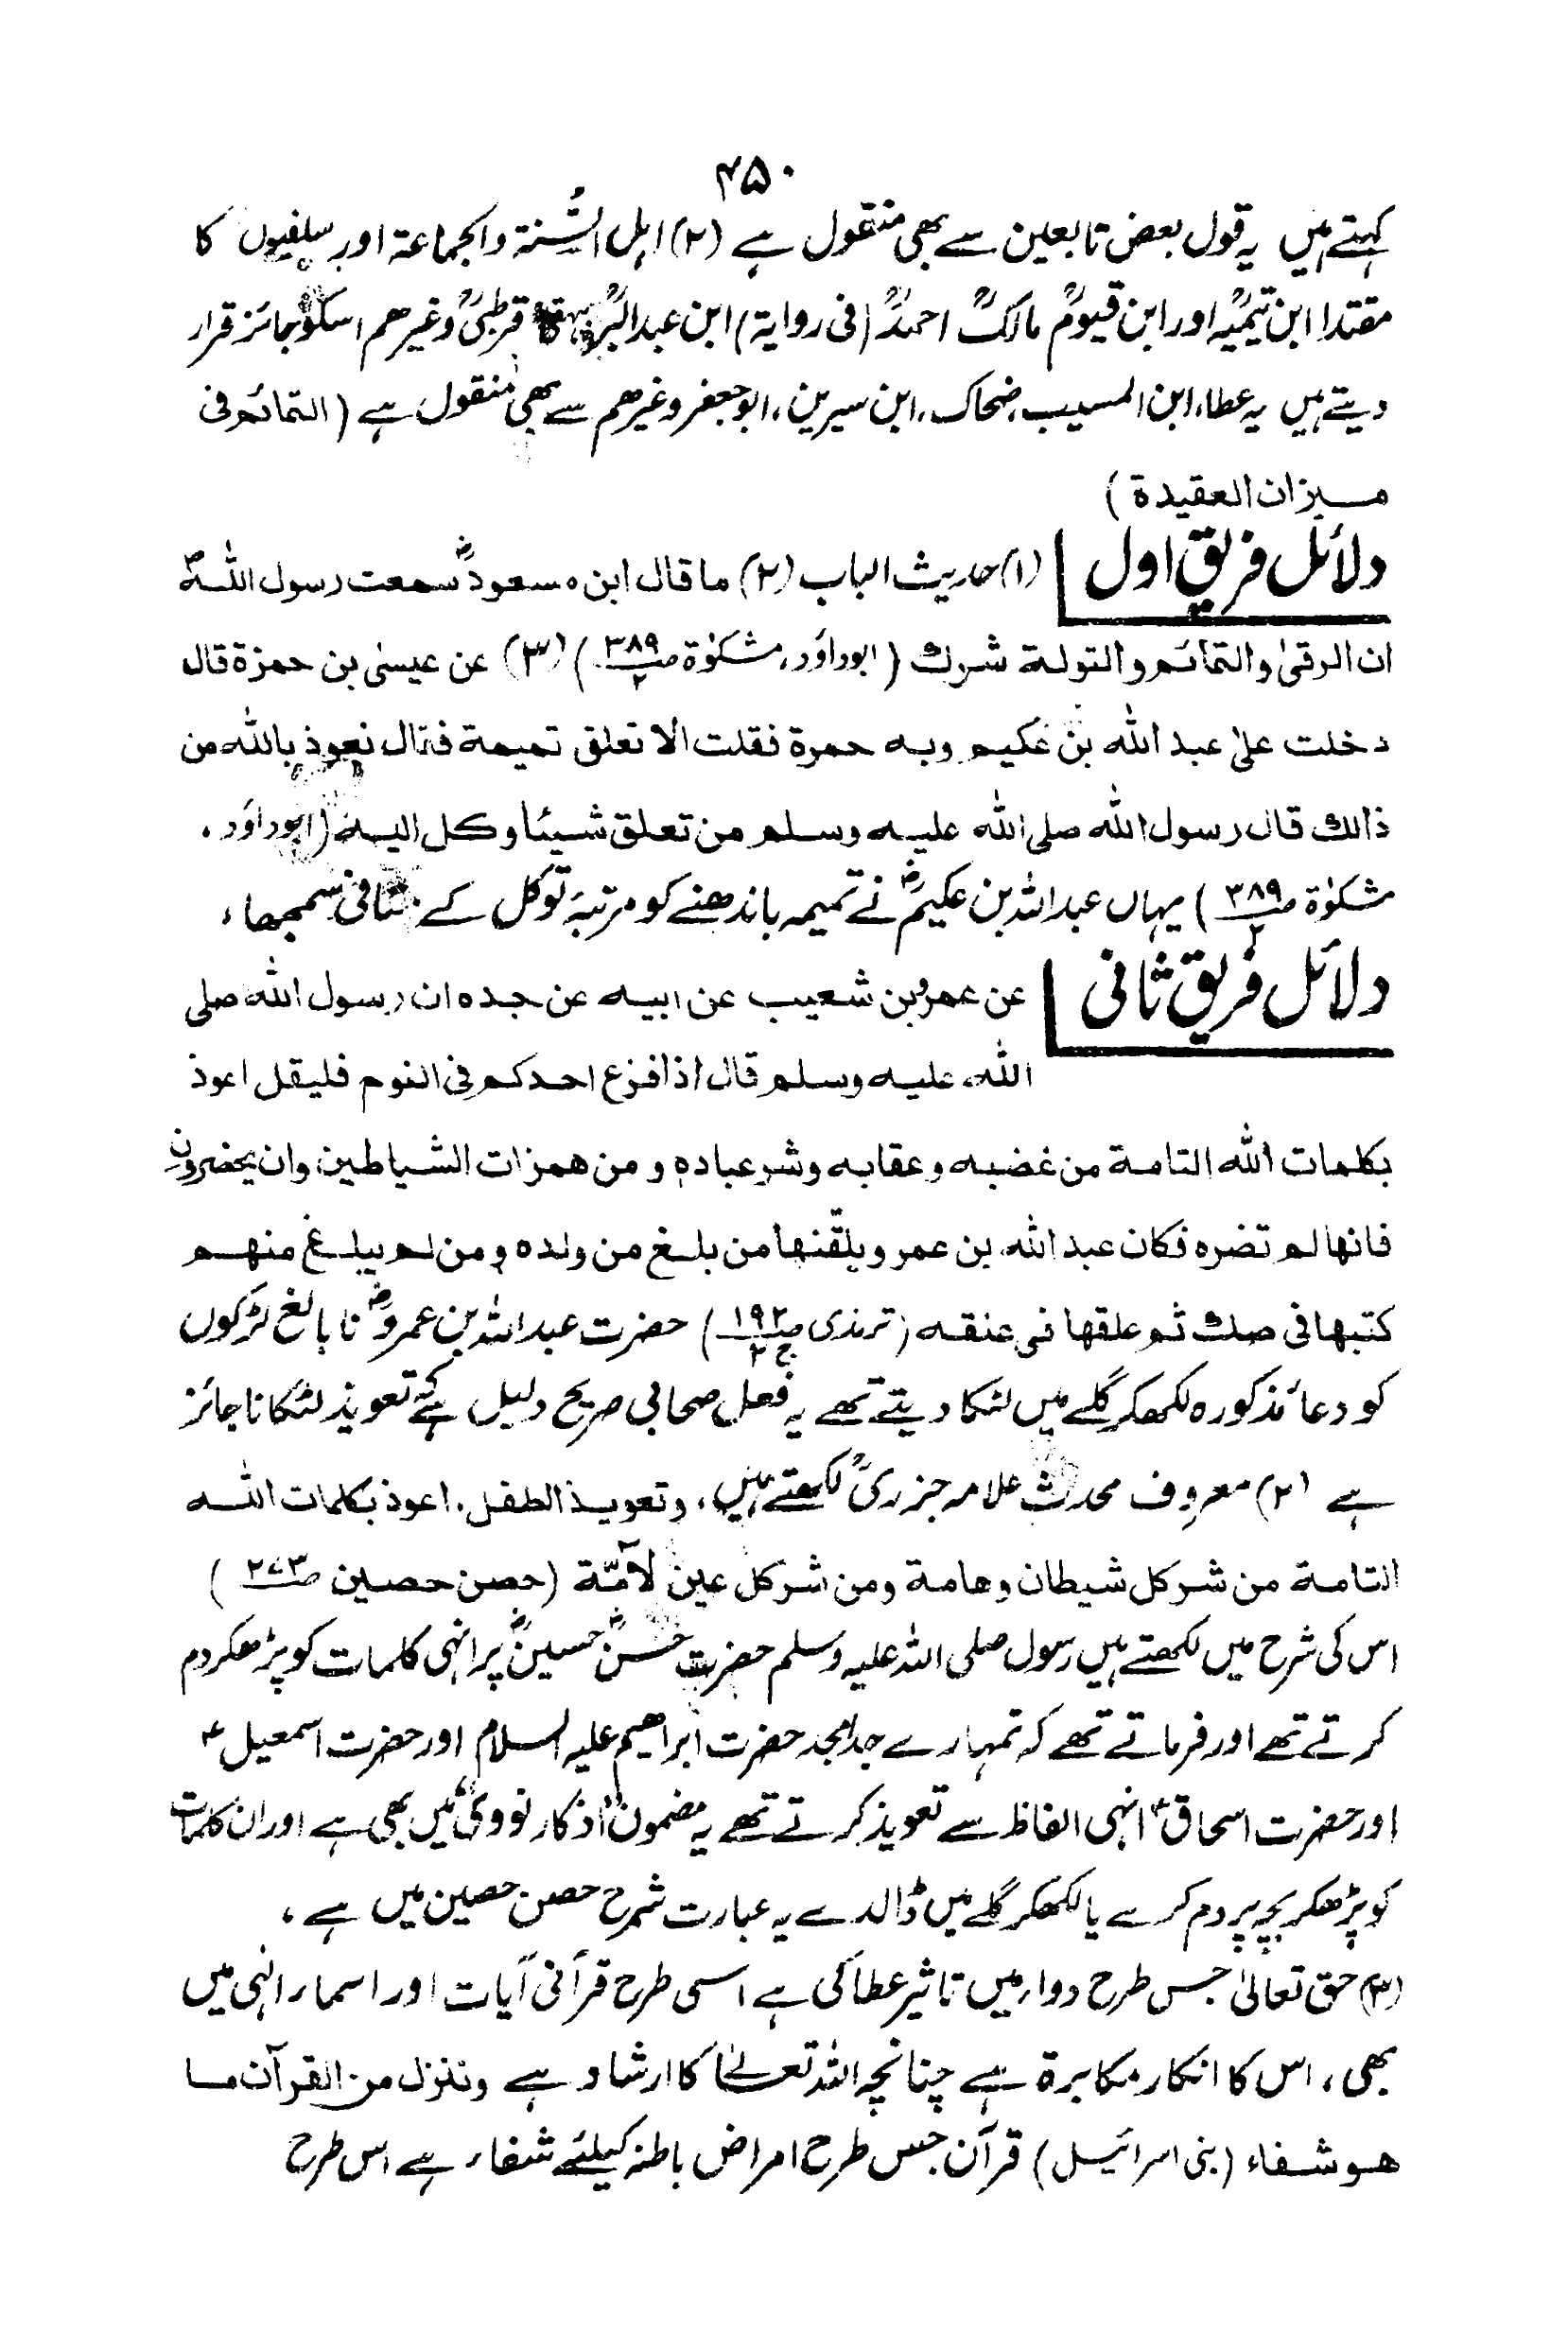 ۴۵۰
کہتے ہیں یہ قول بعض تابعین سے بھی منقول ہے (۲) اہل السُّنۃ والجماعۃ اور سلفیوں کا
مقتدا ابن تیمیہؒ اور ابن قیومؒ مالکؒ احمدؒ (فی روایۃ) ابن عبدالبرؒ قرطبیؒ وغیرھم اسکو جائز قرار
دیتے ہیں یہ عطاء، ابن المسیب، ضحاک، ابن سیرین، ابوجعفر وغیرھم سے بھی منقول ہے (التمائم فی
میزان العقیدۃ)
دلائل فریق اول (۱) حدیث الباب (۲) ما قال ابن مسعودؓ سمعت رسول اللہ ؐ
ان الرقیٰ والتمائم والتولۃ شرک (ابوداؤد، مشکوٰۃ ص۳۸۹/۲) (۳) عن عیسیٰ بن حمزۃ قال
دخلت علیٰ عبد اللہ بن عکیم وبہ حمرۃ فقلت الا تعلق تمیمۃ فقال نعوذ باللہ من
ذالک قال رسول اللہ صلی اللہ علیہ وسلم من تعلق شیئا وکل الیہ (ابوداؤد،
مشکوٰۃ ص۳۸۹/۲) یہاں عبداللہ بن عکیمؓ نے تمیمہ باندھنے کو مرتبۂ توکل کے منافی سمجھا،
دلائل فریق ثانی عن عمرو بن شعیب عن ابیہ عن جدہ ان رسول اللہ صلی
اللہ علیہ وسلم قال اذا فزع احدکم فی النوم فلیقل اعوذ
بکلمات اللہ التامۃ من غضبہ وعقابہ وشر عبادہ ومن ھمزات الشیاطین وان یحضرون
فانھا لم تضرہ فکان عبد اللہ بن عمرو یلقّنھا من بلغ من ولدہ ومن لم یبلغ منھم
کتبھا فی صک ثم علقھا فی عنقہ (ترمذی ص۱۹۲ ج۲) حضرت عبداللہ بن عمروؓ نابالغ لڑکوں
کو دعا مذکورہ لکھکر گلے میں لٹکا دیتے تھے یہ فعل صحابی صریح دلیل ہے کہ تعویذ لٹکانا جائز
ہے (۲) معروف محدث علامہ جزریؒ لکھتے ہیں، وتعویذ الطفل، اعوذ بکلمات اللہ
التامۃ من شر کل شیطان وھامۃ ومن شر کل عین لآمّۃ (حصن حصین ص۲۷۳)
اس کی شرح میں لکھتے ہیں رسول صلی اللہ علیہ وسلم حضرت حسنؓ حسینؓ پر انہی کلمات کو پڑھکر دم
کرتے تھے اور فرماتے تھے کہ تمہارے جد امجد حضرت ابراھیم علیہ السلام اور حضرت اسمعیل ؑ
اور حضرت اسحاق ؑ انہی الفاظ سے تعویذ کرتے تھے یہ مضمون اذکار نوویؒ میں بھی ہے اور ان کلمات
کو پڑھکر بچہ پر دم کرے یا لکھکر گلے میں ڈالدے یہ عبارت شرح حصن حصین میں ہے،
(۳) حق تعالیٰ جس طرح دواء میں تاثیر عطا کی ہے اسی طرح قرآنی آیات اور اسماء الٰہی میں
بھی، اس کا انکار مکابرۃ ہے چنانچہ اللہ تعالیٰ کا ارشاد ہے وننزل من القرآن ما
ھو شفاء (بنی اسرائیل) قرآن جس طرح امراض باطنہ کیلئے شفاء ہے اس طرح